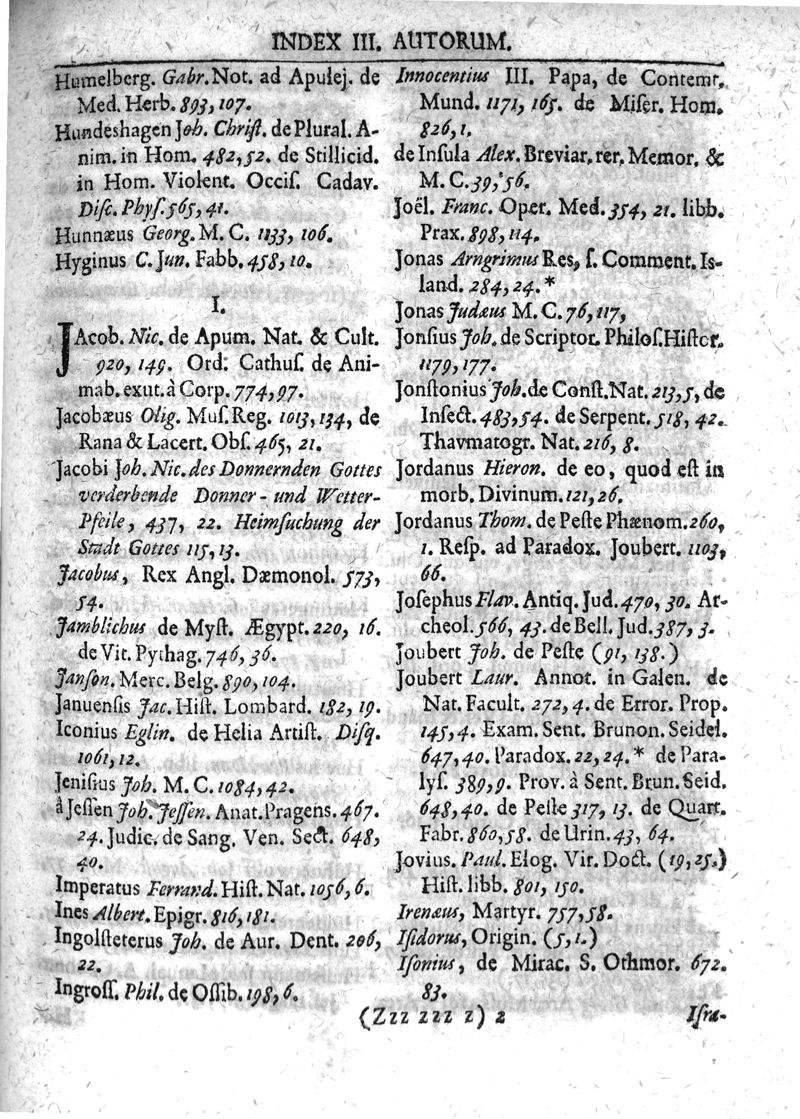 INDEX III. AUTORUM.
Humelberg. Gabr. Not. ad Apulej. de
Med. Herb. 893, 107.
Hundeshagen Joh. Christ. de Plural. A-
nim. in Hom. 482, 52. de Stillicid.
in Hom. Violent. Occis. Cadav.
Disc. Phys. 565, 41.
Hunnæus Georg. M. C. 1133, 106.
Hyginus C. Jun. Fabb. 458, 10.
I.
JAcob. Nic. de Apum. Nat. & Cult.
920, 149. Ord. Cathus. de Ani-
mab. exut. à Corp. 774, 97.
Jacobæus Olig. Mus. Reg. 1013, 134, de
Rana & Lacert. Obs. 465, 21.
Jacobi Joh. Nic. des Donnernden Gottes
verderbende Donner- und Wetter-
Pfeile, 437, 22. Heimsuchung der
Stadt Gottes 115, 13.
Jacobus, Rex Angl. Dæmonol. 573,
54.
Jamblichus de Myst. Ægypt. 220, 16.
de Vit. Pythag. 746, 36.
Janson. Merc. Belg. 890, 104.
Januensis Jac. Hist. Lombard. 182, 19.
Iconius Eglin. de Helia Artist. Disq.
1061, 12.
Jenisius Joh. M. C. 1084, 42.
â Jessen Joh. Jessen. Anat. Pragens. 467.
24. Judic. de Sang. Ven. Sect. 648,
40.
Imperatus Ferrand. Hist. Nat. 1056, 6.
Ines Albert. Epigr. 816, 181.
Ingolsteterus Joh. de Aur. Dent. 206,
22.
Ingross. Phil. de Ossib. 198, 6.
Innocentius III. Papa, de Contemt.
Mund. 1171, 165. de Miser. Hom.
826, 1.
de Insula Alex. Breviar. rer. Memor. &
M. C. 39, 56.
Joël. Franc. Oper. Med. 354, 21. libb.
Prax. 898, 114.
Jonas Arngrimus Res, s. Comment. Is-
land. 284, 24.*
Jonas Judæus M. C. 76, 117,
Jonsius Joh. de Scriptor. Philos. Histor.
1179, 177.
Jonstonius Joh. de Const. Nat. 213, 5, de
Insect. 483, 54. de Serpent. 518, 42.
Thavmatogr. Nat. 216, 8.
Jordanus Hieron. de eo, quod est in
morb. Divinum. 121, 26.
Jordanus Thom. de Peste Phænom. 260,
1. Resp. ad Paradox. Joubert. 1103,
66.
Josephus Flav. Antiq. Jud. 470, 30. Ar-
cheol. 566, 43. de Bell. Jud. 387, 3.
Joubert Joh. de Peste (91, 138.)
Joubert Laur. Annot. in Galen. de
Nat. Facult. 272, 4. de Error. Prop.
145, 4. Exam. Sent. Brunon. Seidel.
647, 40. Paradox. 22, 24.* de Para-
lys. 389, 9. Prov. à Sent. Brun. Seid.
648, 40. de Peste 317, 13. de Quart.
Fabr. 860, 58. de Urin. 43, 64.
Jovius. Paul. Elog. Vir. Doct. (19, 25.)
Hist. libb. 801, 150.
Irenæus, Martyr. 757, 58.
Isidorus, Origin. (5, 1.)
Isonius, de Mirac. S. Othmor. 672.
83.
(Zzz zzz z) 2
Isra-